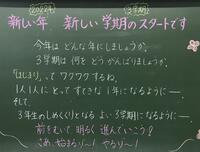 2022年 3学期
新しい年 新しい学期のスタートです
今年は どんな年にしましょうか。
3学期は 何を どうがんばりましょうか。
「はじまり」って ワクワクするね。
1人1人にとって すてきな1年になるように…
そして
3年生のしめくくりとなる よい3学期になるように…
前をむいて 明るく 進んでいこう!
さあ、始まるり〜! やるり〜!